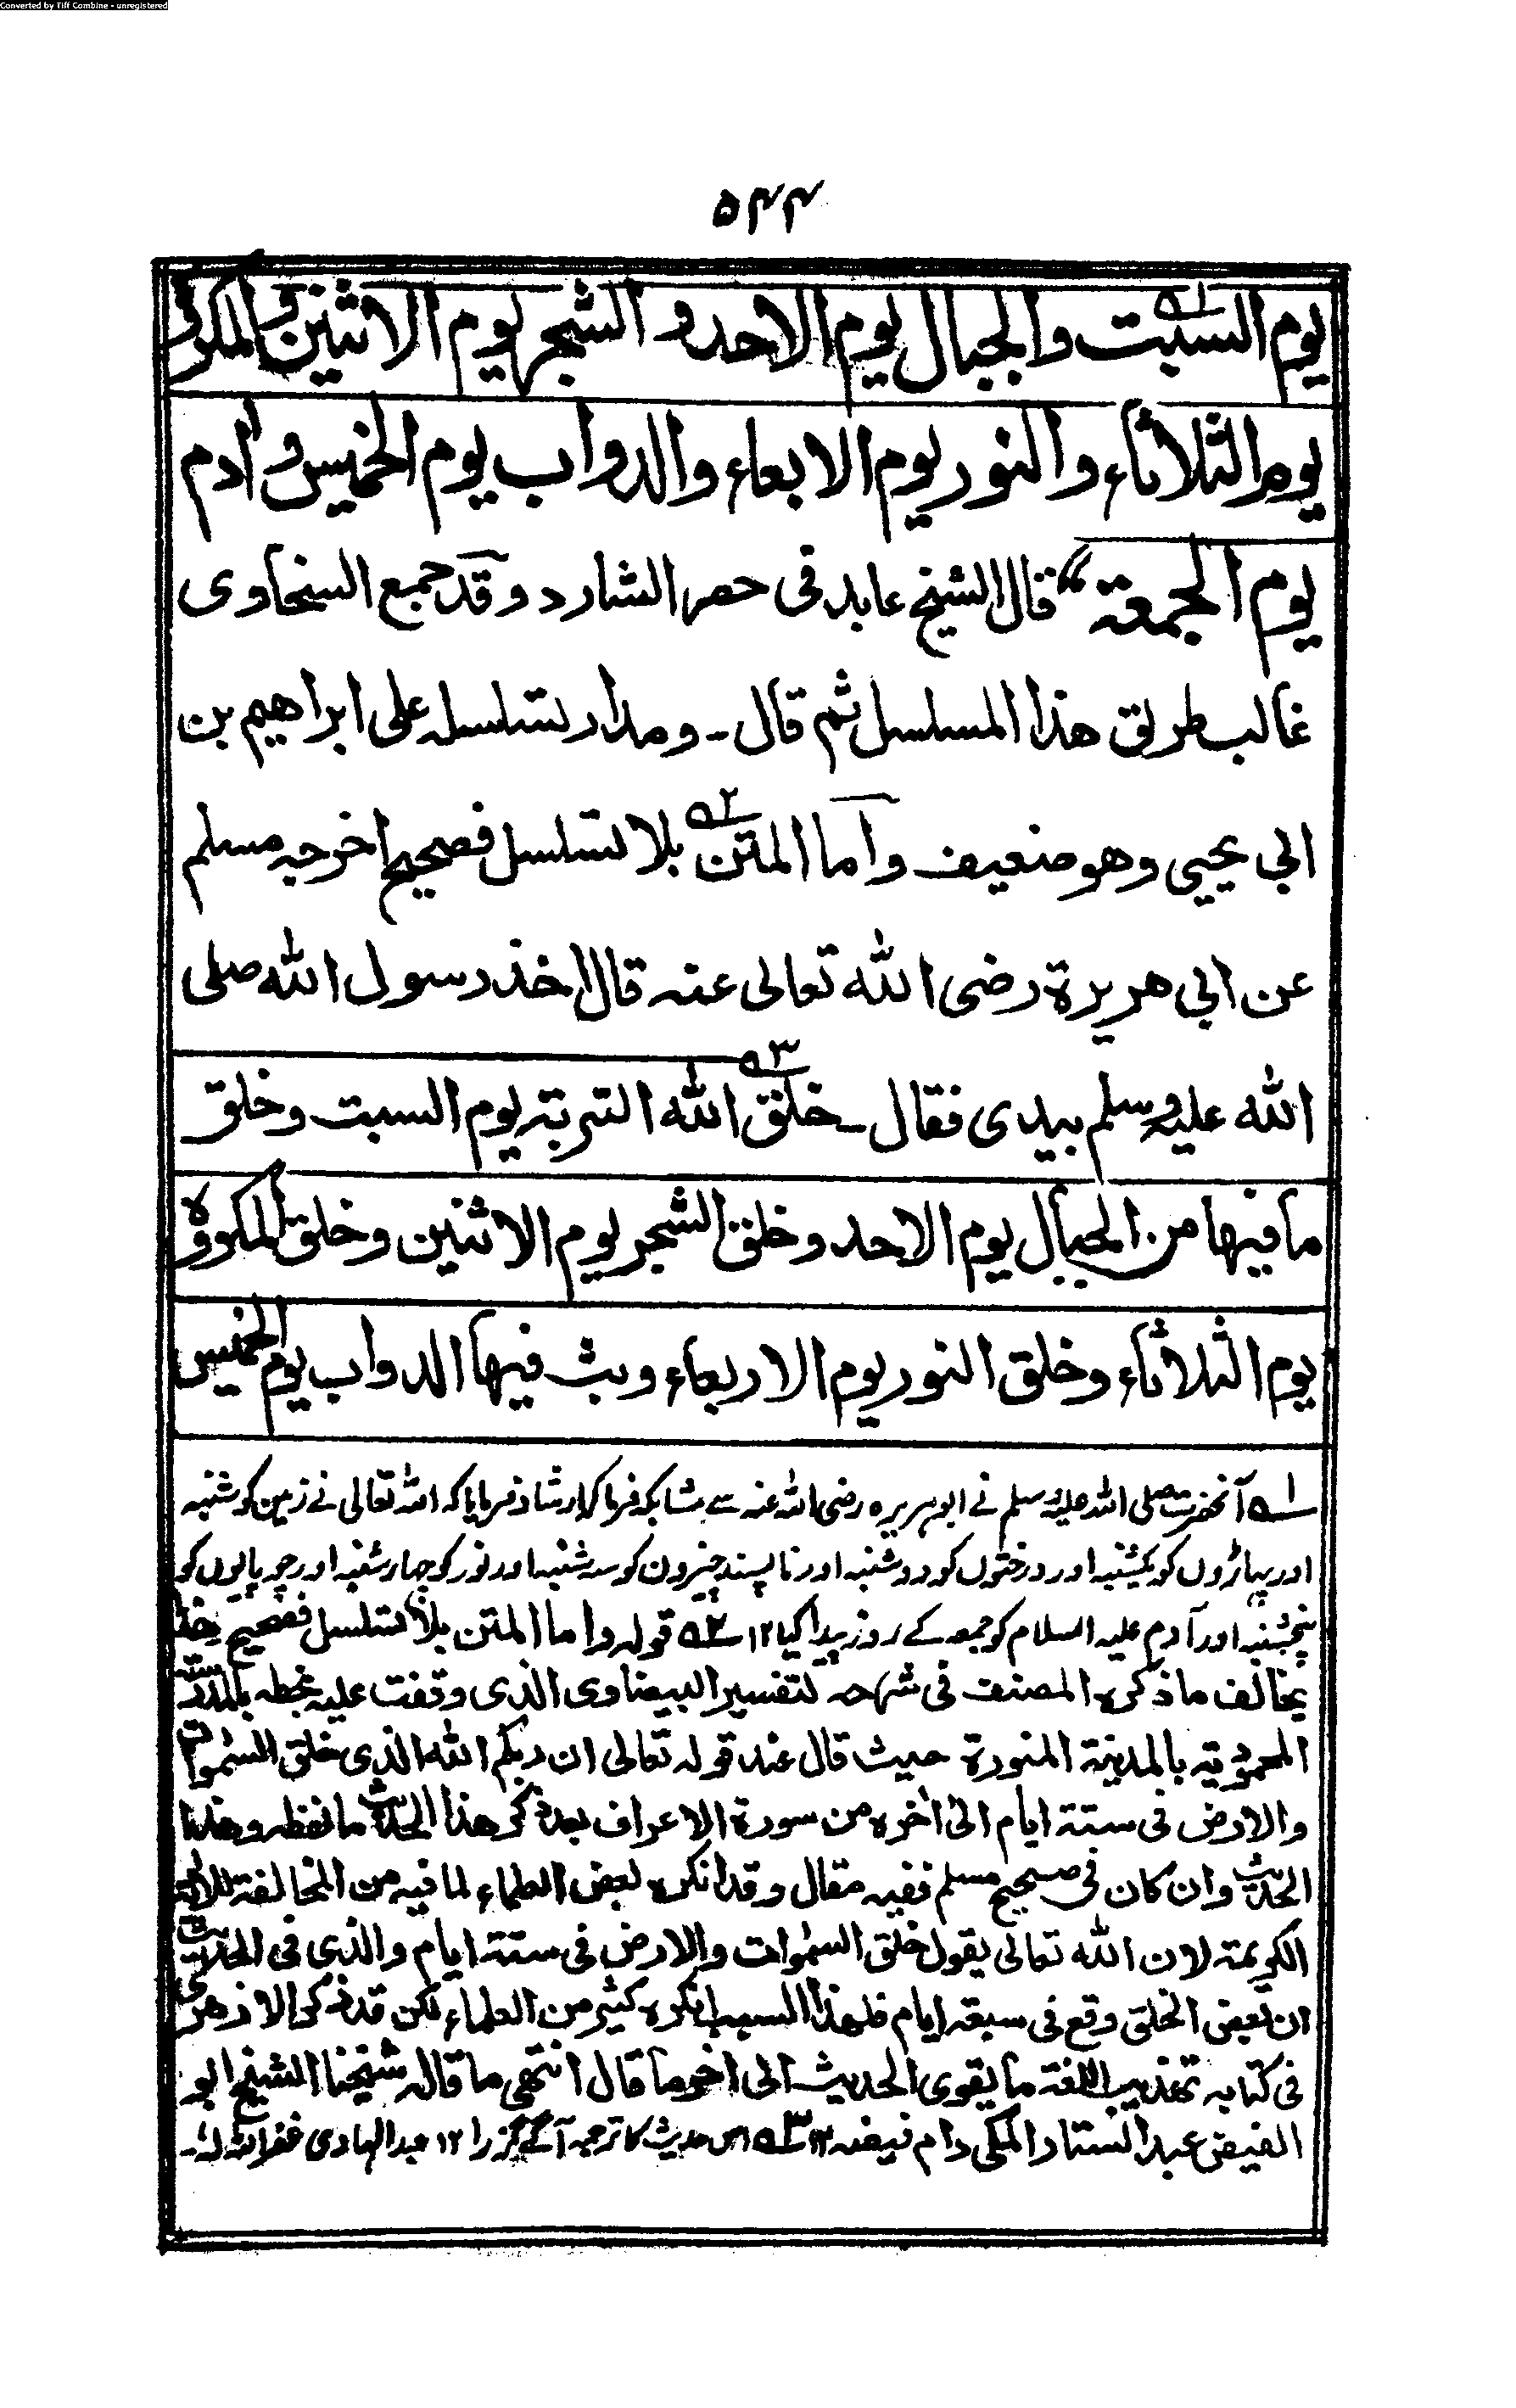 Converted by Tiff Combine - unregistered
۵۴۴
يوم السبت والجبال يوم الاحد و الشجر يوم الاثنين والمكروه
يوم الثلاثاء والنور يوم الابعاء والدواب يوم الخميس و آدم
يوم الجمعة“ قال الشيخ عابد فى حصر الشارد وقد جمع السخاوى
غالب طريق هذا المسلسل ثم قال۔ ومدار تسلسله على ابراهيم بن
ابي يحيى وهو ضعيف واما المتن ۲؎ بلا تسلسل فصحيح اخرجه مسلم
عن ابي هريرة رضى الله تعالى عنه قال اخذ رسول الله صلى
الله عليه وسلم بيدى فقال۔ خلق ۳؎ الله التربة يوم السبت وخلق
ما فيها من الجبال يوم الاحد وخلق الشجر يوم الاثنين وخلق المكروه
يوم الثلاثاء وخلق النور يوم الاربعاء وبث فيها الدواب يوم الخميس
۱؎ آنحضرت صلى الله عليه وسلم نے ابوہریرہ رضی اللہ عنہ سے مشابکہ فرما کر ارشاد فرمایا کہ اللہ تعالی نے زمین کو شنبہ
اور پہاڑوں کو یکشنبہ اور درختوں کو دوشنبہ اور ناپسند چیزوں کو سہ شنبہ اور نور کو چہار شنبہ اور چوپایوں کو
پنجشنبہ اور آدم علیہ السلام کو جمعہ کے روز پیدا کیا ۱۲ ۲؎ قوله واما المتن بلا تسلسل فصحيح هذا
يخالف ما ذكره المصنف فى شرحه لتفسير البيضاوى الذى وقفت عليه بخطه بالمدرسة
المحمودية بالمدينة المنورة حيث قال عند قوله تعالى ان ربكم الله الذى خلق السمٰوات
والارض فى ستة ايام الى آخره من سورة الاعراف بعد ذكر هذا الحديث ما نفظه وهذا
الحديث وان كان فى صحيح مسلم ففيه مقال وقد انكره بعض العلماء لما فيه من المخالفة للاية
الكريمة لان الله تعالى يقول خلق السمٰوات والارض فى ستة ايام والذى فى الحديث
ان بعض الخلق وقع فى سبعة ايام فلهذا السبب انكره كثير من العلماء لكن قد ذكر الازهرى
فى كتابه تهذيب اللغة ما يقوى الحديث الى آخر ما قال انتهى ما قاله شيخنا الشيخ ابو
الفيض عبد الستار المكى دام فيضه ۱۲ ۳؎ اس حديث كا ترجمہ آگے گزرا ۱۲ عبد الہادی غفر اللہ لہٗ۔